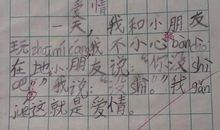 爱情
一天，我和小朋友
玩zhuōmícáng我不小心bàn dǎo
在地小朋友说：“你没shì
吧？”我说：“没shì。”我
jué这就是爱情。
gǎn